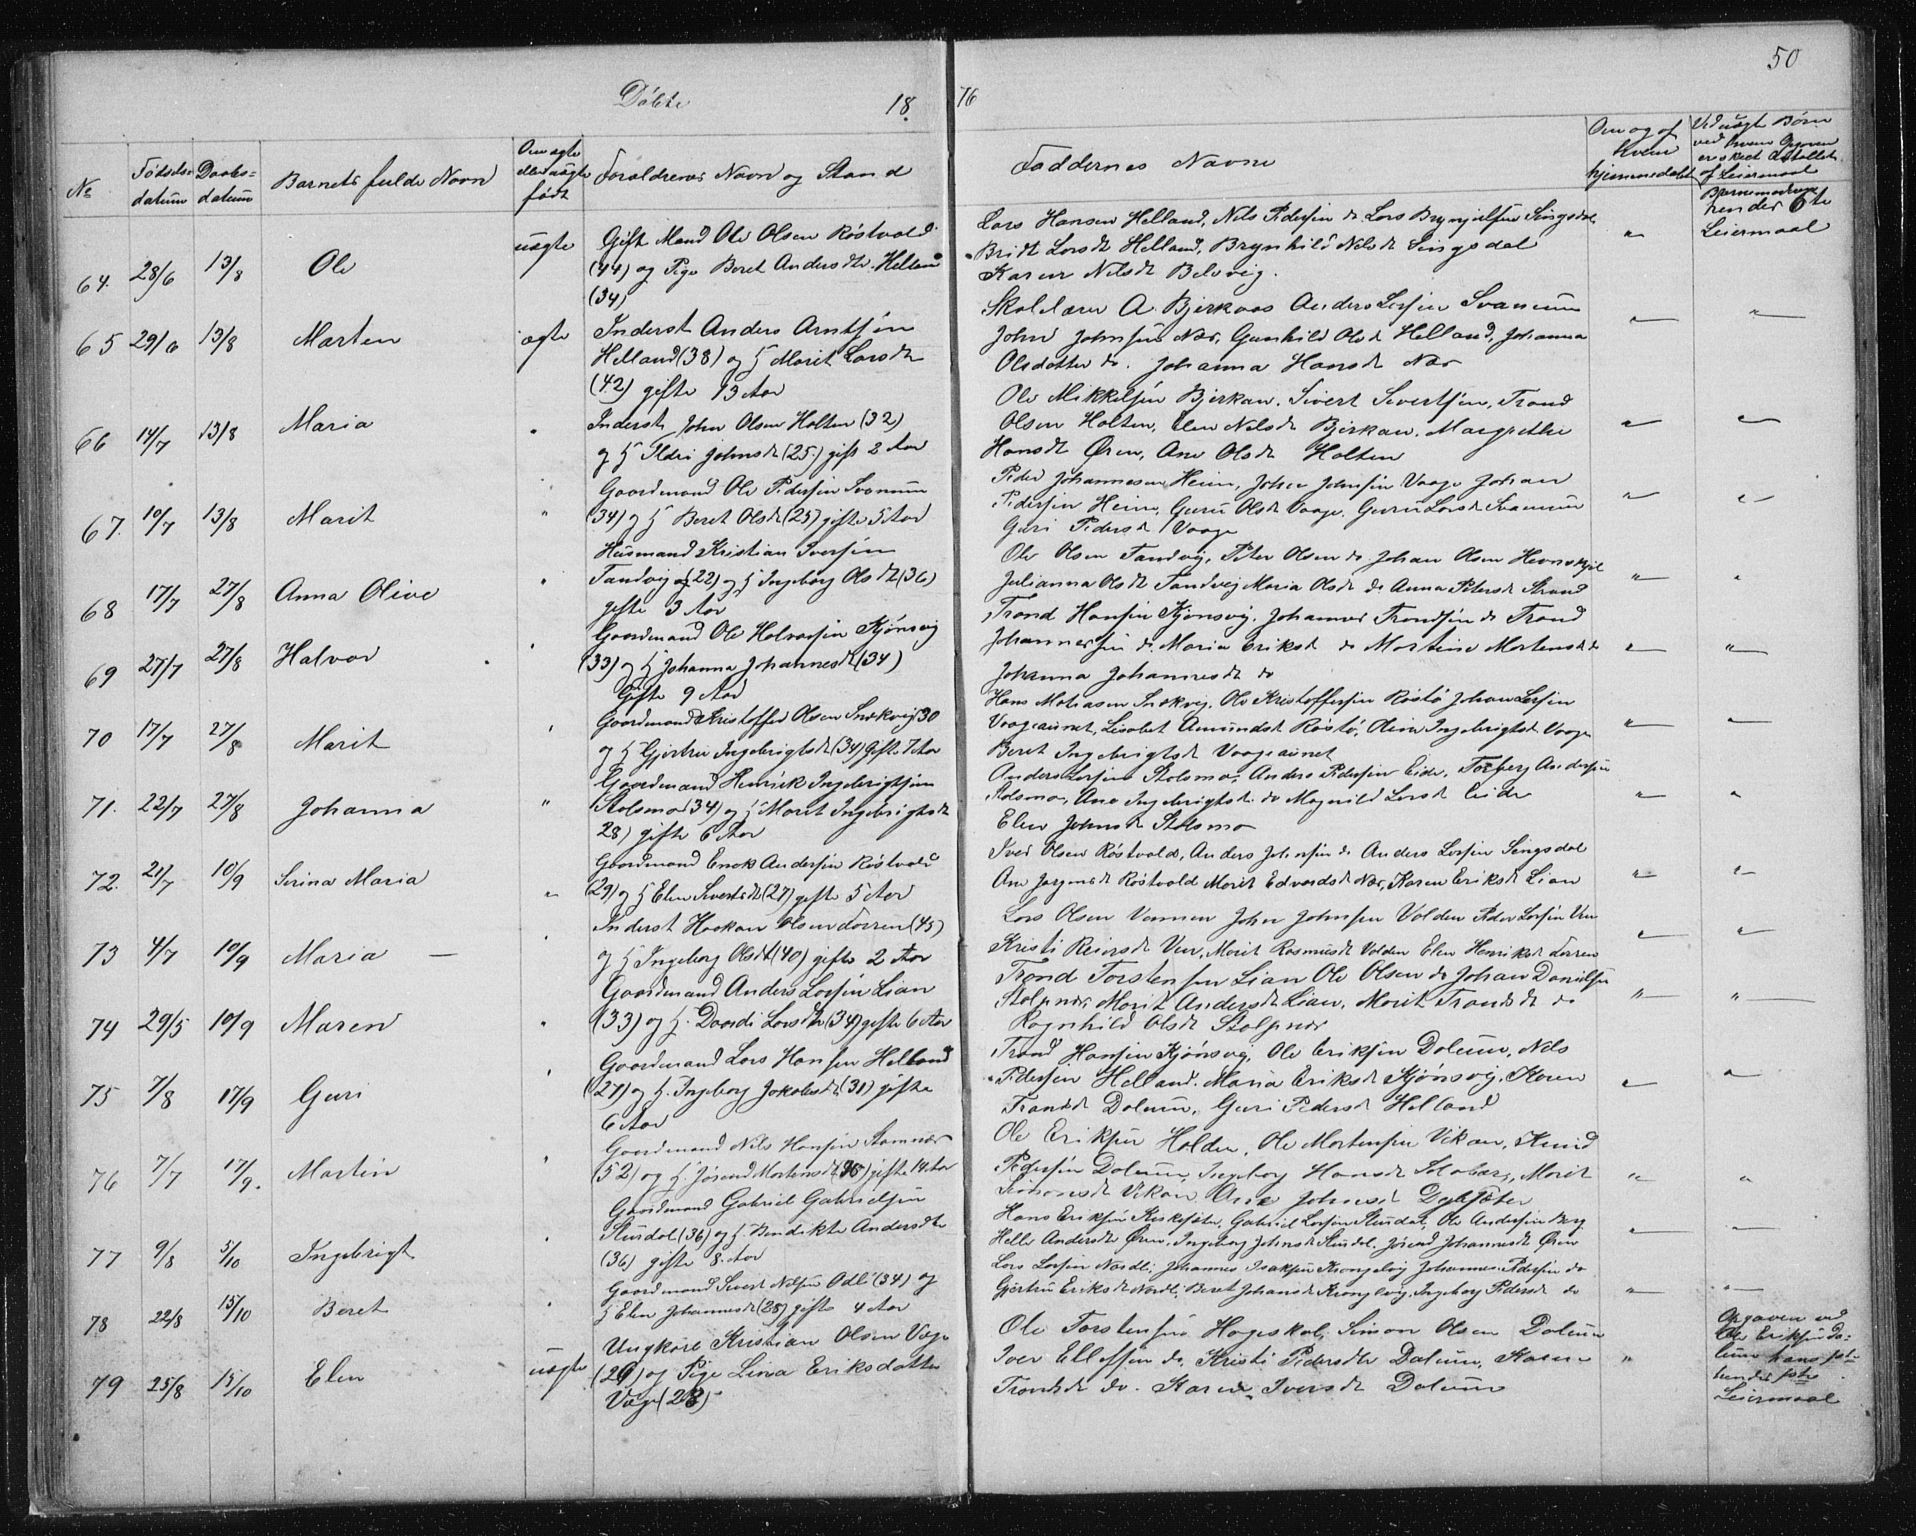 50
Döbte 18 76
No
Födsels-datum
Daabs-datum
Barnets fulde Navn
Om ægte eller uægte født
Forældrenes Navn og Stand
Faddernes Navne
Om og af hvem hjemmedøbt
Ved uægte Børn
64. 28/6 13/8 Ole uægte
Gift Mand Ole Olsen Röstvold
(44) og Pige Beret Andersdtr Helland
(34)
Lars Hansen Helland, Nils Pedersen do Lars Brynjelfsen Singsdal
Brit Larsdt Helland, Brynhild Nilsdt Singsdal
Karen Nilsdt Belsvig.
Barnemoderen hendes 6te Leiermaal
65 29/6 13/8 Morten ægte
Inderst Anders Arntsön
Helland (38) og H Marit Larsdtr
(42) gifte 13 Aar
Skolelærer A. Bjerkaas Anders Larsen Svanem
John Johnsen Nær, Gunhild Olsdt Helland, Johanna
Olsdatter do. Johanna Hansdt Nær
66 14/7 13/8 Maria "
Inderst John Olsen Holten (32)
og H Ildri Johnsdt (25) gift 2 Aar
Ole Mikkelsen Bjerkan. Sivert Sivertsen, Trond
Olsen Holten, Elen Nilsdt Bjerkan. Margrethe
Hansdt Ören, Ane Olsdt Holten
67. 10/7 13/8 Marit "
Gaardmand Ole Pedersen Svanem
(34) og H Beret Olsdt (25) gifte 5 Aar
Peder Johannesen Heim, John Johnsen Vaage Johan
Pedersen Heim, Guru Olsdt Vaage, Guru Larsdt Svanem
Guri Pedersdt Vaage
68 17/7 27/8 Anna Olive "
Husmand Kristian Iversen
Tandvig (22) og H Ingeborg Olsdt (36)
gifte 3 Aar
Ole Olsen Tandvig, Peter Olsen do Johan Olsen
Julianna Olsdt Tandvig Maria Olsdt do Anna Petersdt Strand
69 27/7 27/8 Halvor "
Gaardmand Ole Halvorsen Kjönsvig
(33) og H Johanna Johannesdt (34)
Gifte 9 Aar
Trond Hansen Kjönsvig, Johannes Trondsen do Trond
Johannessen do Maria Eriksdt do Martine Mortensdt do
Johanna Johannesdt do
70 17/7 27/8 Marit "
Gaardmand Kristoffer Olsen Snekvig 30
og H Gjertru Ingebrigtsdt (34) Gifte 7 Aar
Hans Matiasen Snekvig, Ole Kristoffersen Röstö Johan Larsen
Vaageaunet, Lisabet Amundsdt Röstö, Oline Ingebrigtsdt Vaage
Beret Ingebrigtsdt Vaageaunet
71. 22/7 27/8 Johanna "
Gaardmand Henrik Ingebrigtsen
Stolsmo (34) og H Marit Ingebrigtsdt
28) gifte 6 Aar
Anders Larsen Stolsmo, Anders Pedersen Eide, Torberg Andersen
Stolsmo, Ane Ingebrigtsdt do Magnild Larsdt Eide
Elen Johnsdt Stolsmo
72. 21/7 10/9 Serina Maria "
Gaardmand Enok Andersen Röstvold
(29) og H Elen Sivertsdt (27) gifte 5 Aar
Iver Olsen Röstvold, Anders Johnsen do Anders Larsen Sengsdal
Ane Jørgensdt Röstvold Marit Edvardsdt Nær, Karen Eriksdt Lian
73 4/7 10/9 Maria "
Inderst Haakon Olsen Torren (45)
og H Ingeborg Olsdt (40) gifte 2 Aar
Lars Olsen Vennen John Johnsen Volden Peder Larsen
Kristi Reiersdt Marit Rasmusdt Volden Elen Henriksdt Torren
74 29/5 10/9 Maren "
Gaardmand Anders Larsen Lian
(33) og H. Dordi Larsdtr (34) gifte 6 Aar
Trond Torstensen Lian Ole Olsen do Johan Danielsen
Stolpnes, Marit Andersdt Lian, Marit Trondsdt do
Ragnhild Olsdt Stolpnes
75 7/8 17/9 Guri "
Gaardmand Lars Hansen Helland
(27) og H. Ingeborg Jakobsdt (31) gifte
6 Aar
Trond Hansen Kjönsvig, Ole Eriksen Dolum, Nils
Pedersen Helland. Maria Eriksdt Kjönsvig. Karen
Trondsdt Dolum, Guri Pedersdt Helland
76 7/7 17/9. Martin "
Gaardmand Nils Hansen Stamnes
(52) og H Jörend Mortensdt gifte 14 Aar
Ole Eriksen Holden, Ole Mortensen Vikan, Knud
Pedersen Dolum, Ingeborg Hansdt Solaberg, Marit
Simonsdt Vikan Ane Johnsdt
77 9/8 5/10 Ingebrigt "
Gaardmand Gabriel Gabrielsen
Stusdal (36) og H. Bendikte Andersdtr
(36) gifte 8. Aar
Hans Eriksen Gabriel Larsen Stusdal, Ole Andersen Berg
Helle Andersdt Ören, Ingeborg Johnsdt Stusdal, Jörend Johannesdt Ören
78 22/8 15/10 Beret "
Gaardmand Sivert Nilsen Odli (34) og
H Elen Johannesdt (28) gifte 4 Aar
Lars Larsen Nordli, Johannes Isaksen Krongelvig Johannes Pedersen do
Gjertru Eriksdt Nordli, Beret Johansdt Krongelvig, Ingeborg Pedersdt do
79 25/8 15/10 Elen uægte
Ungkarl Kristian Olsen Vage
(26) og Pige Lina Eriksdatter
Vage (28)
Ole Torstensen Hageskal, Simon Olsen Dolum
Iver Ellefsen do, Kristi Pedersdtr Dolum, Karen
Trondsdt do. Karen Iversdt Dolum
Opgaven ved
Ole Eriksen Do-
lum hans 1ste
hendes 1ste
Leiermaal